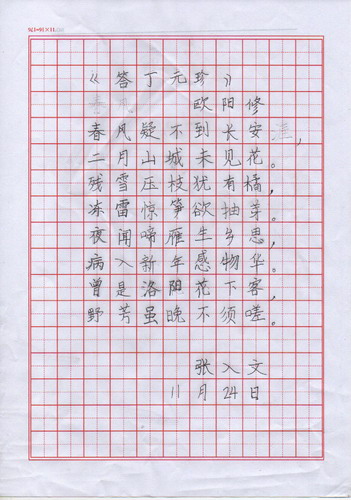 《答丁元珍》
欧阳修
春风疑不到长安，
二月山城未见花。
残雪压枝犹有橘，
冻雷惊笋欲抽芽。
夜闻啼雁生乡思，
病入新年感物华。
曾是洛阳花下客，
野芳虽晚不须嗟。
张入文
11月24日